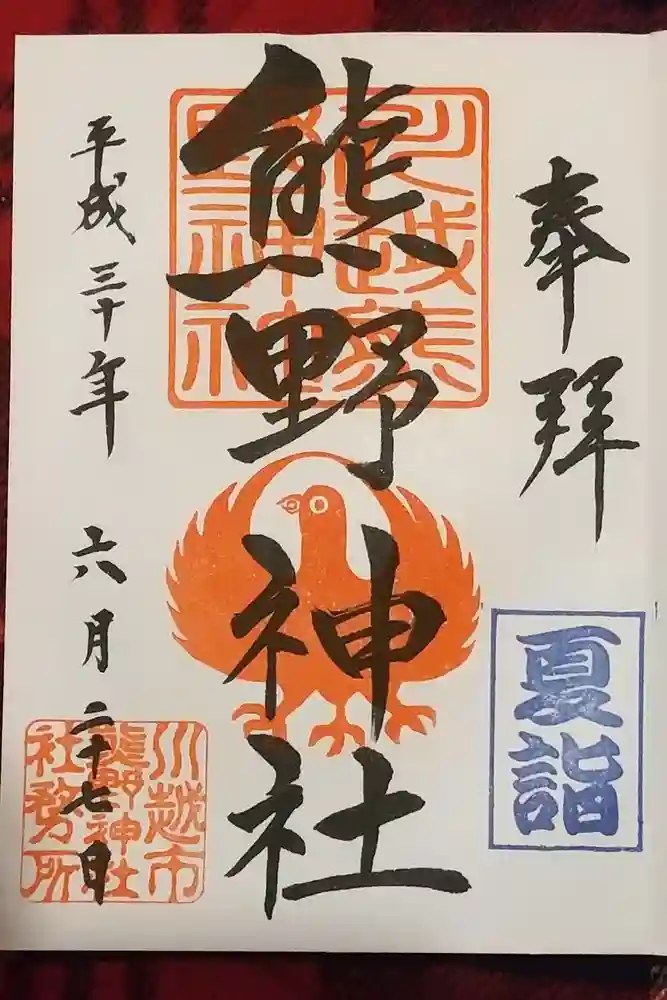 奉拝
夏詣
川越熊野神社
熊野神社
平成三十年 六月二十七日
川越市
熊野神社
社務所